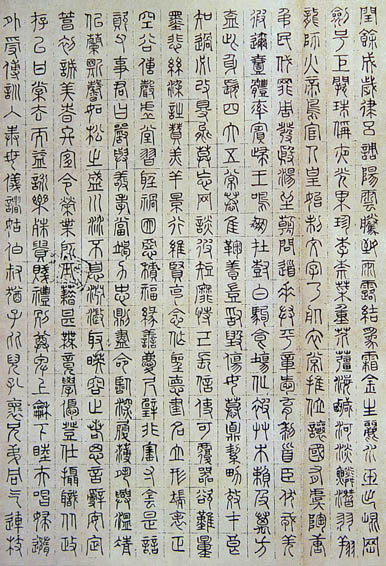 閏餘成歲律呂調陽雲騰致雨露結為霜金生麗水玉出崐岡
劍號巨闕珠稱夜光果珍李柰菜重芥薑海鹹河淡鱗潛羽翔
龍師火帝鳥官人皇始制文字乃服衣裳推位讓國有虞陶唐
弔民伐罪周發殷湯坐朝問道垂拱平章愛育黎首臣伏戎羌
遐邇壹體率賓歸王鳴鳳在樹白駒食場化被草木賴及萬方
蓋此身髮四大五常恭惟鞠養豈敢毀傷女慕貞潔男效才良
知過必改得能莫忘罔談彼短靡恃己長信使可覆器欲難量
墨悲絲染詩讚羔羊景行維賢克念作聖德建名立形端表正
空谷傳聲虛堂習聽禍因惡積福緣善慶尺璧非寶寸陰是競
資父事君曰嚴與敬孝當竭力忠則盡命臨深履薄夙興溫凊
似蘭斯馨如松之盛川流不息淵澄取映容止若思言辭安定
篤初誠美慎終宜令榮業所基藉甚無竟學優登仕攝職從政
存以甘棠去而益詠樂殊貴賤禮別尊卑上和下睦夫唱婦隨
外受傅訓入奉母儀諸姑伯叔猶子比兒孔懷兄弟同氣連枝